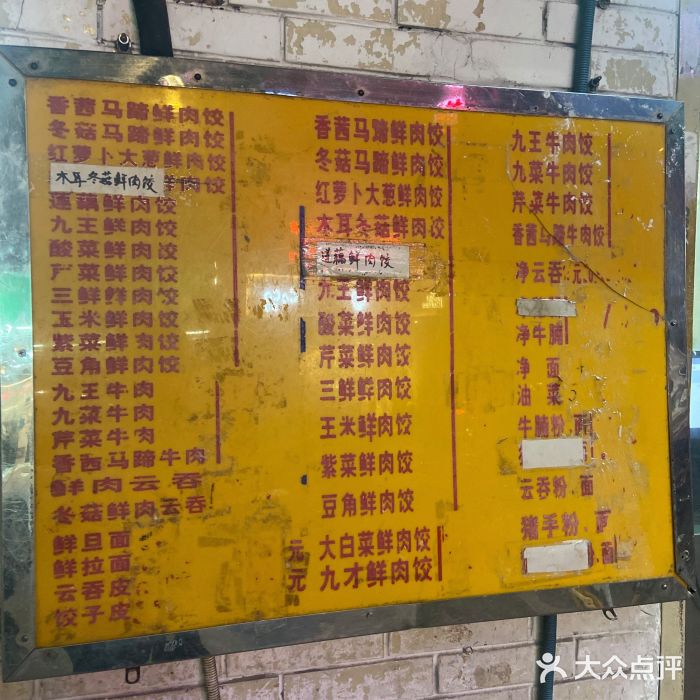 香茜马蹄鲜肉饺
冬菇马蹄鲜肉饺
红萝卜大葱鲜肉饺
木耳冬菇鲜肉饺
莲藕鲜肉饺
九王鲜肉饺
酸菜鲜肉饺
芹菜鲜肉饺
三鲜鲜肉饺
玉米鲜肉饺
紫菜鲜肉饺
豆角鲜肉饺
九王牛肉
九菜牛肉
芹菜牛肉
香西马蹄牛肉
鲜肉云吞
冬菇鲜肉云吞
鲜旦面
鲜拉面
云吞皮
饺子皮
香茜马蹄鲜肉饺
冬菇马蹄鲜肉饺
红萝卜大葱鲜肉饺
木耳冬菇鲜肉饺
莲藕鲜肉饺
九王鲜肉饺
酸菜鲜肉饺
芹菜鲜肉饺
三鲜鲜肉饺
玉米鲜肉饺
紫菜鲜肉饺
豆角鲜肉饺
元 大白菜鲜肉饺
元 九才鲜肉饺
九王牛肉饺
九菜牛肉饺
芹菜牛肉饺
香茜马蹄牛肉饺
净云吞 元
净牛腩
净面
油菜
牛腩粉、面
云吞粉、面
猪手粉、面
面
大众点评